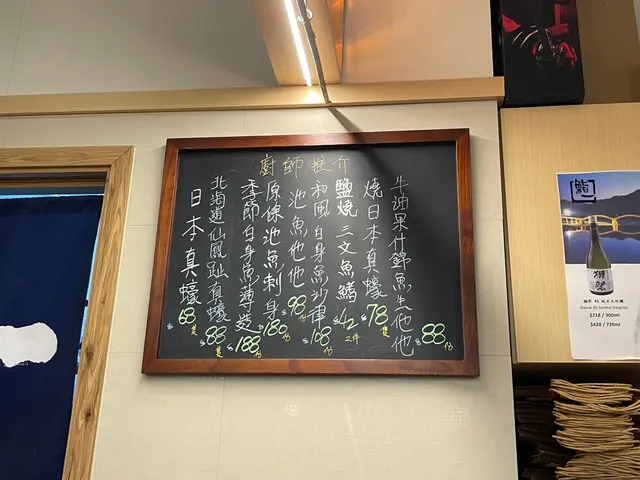 廚師推介
牛油果什錦魚生他他 $88/份
燒日本真蠔 $78/隻
鹽燒三文魚鰭 $42 2件
和風白身魚沙律 $108/份
池魚他他 $98/份
原條池魚刺身 $180/份
季節白身魚薄造 $188/份
北海道仙鳳趾真蠔 $88/隻
日本真蠔 $68/隻
鮨一
獺祭
$218 / 300ml
$428 / 720ml